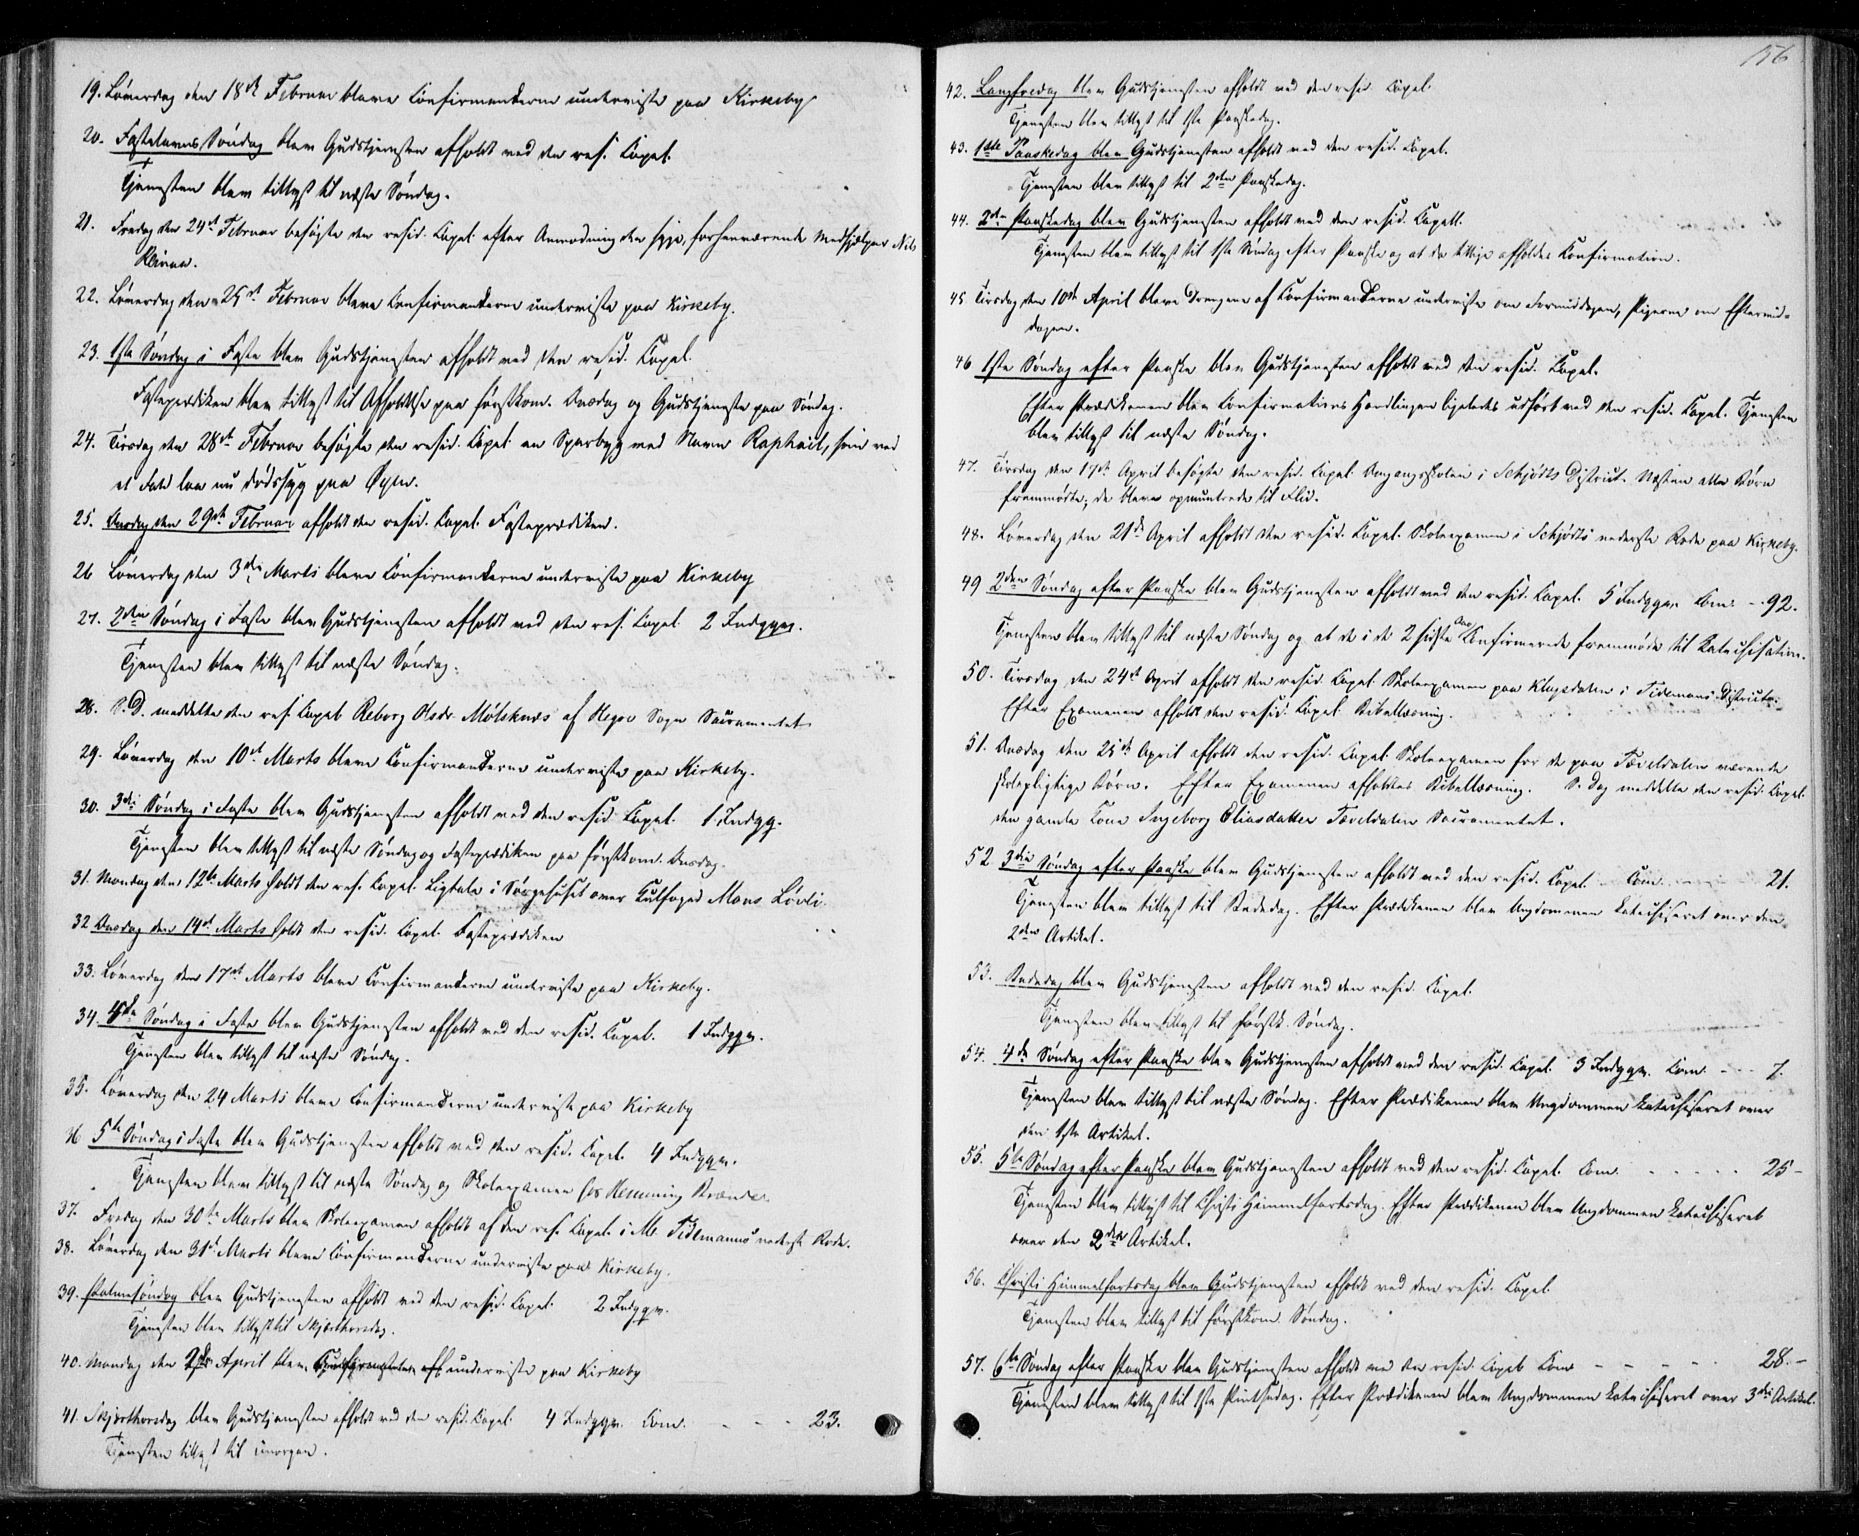 19. Löverdag den 18de Februar bleve Confirmanderne underviste paa Kirkeby
20. Fastelavns Søndag blev Gudstjenesten afholdt ved den res. Capel.
Tjenesten blev tillyst til næste Søndag.
21. Fredag den 24de Februar besøgte den resid. Capel. efter Anmodning den syge, forhenværende Medhjælper Nils
22. Löverdag den 25de Februar bleve Confirmanderne underviste paa Kirkeby.
23. 1ste Søndag i Faste blev Gudstjenesten afholdt ved den resid. Capel.
Fasteprædiken blev tillyst til Afholdelse paa førstkom. Onsdag og Gudstjeneste paa Søndag.
24. Tirsdag den 28de Februar besøgte den resid. Capel. en Sparbyg med Navn Raphael, som ved
et Fald laa nu dødssyg paa Øyen.
25. Onsdag den 29de Februar afholdt den resid. Capel. Fasteprædiken.
26 Löverdag den 3die Marts bleve Confirmanderne underviste paa Kirkeby
27. 2den Søndag i Faste blev Gudstjenesten afholdt ved den res. Capel. 2 Indggn.
Tjenesten blev tillyst til næste Søndag.
28. S. D. meddelte den res. Capel. Reborg Olsdr. Mølsknæs af Hegre Sogn Sacramentet
29. Löverdag den 10de Marts bleve Confirmanderne underviste paa Kirkeby.
30. 3die Søndag i Faste blev Gudstjenesten afholdt ved den resid. Capel. 1 Indgg.
Tjenesten blev tillyst til næste Søndag og Fasteprædiken paa førstkom. Onsdag.
31. Mandag den 12te Marts holdt den res. Capel. Ligtale i Sørgehuset over Kulfoged Mons Løvli.
32 Onsdag den 14de Marts holdt den resid. Capel. Fasteprædiken
33. Löverdag den 17de Marts bleve Confirmanderne underviste paa Kirkeby.
34. 4de Søndag i Faste blev Gudstjenesten afholdt ved den resid. Capel. 1 Indggn.
Tjenesten blev tillyst til næste Søndag.
35. Löverdag den 24 Marts bleve Confirmanderne underviste paa Kirkeby
36 5te Søndag i Faste blev Gudstjenesten afholdt ved den resid. Capel. 4 Indggn.
Tjenesten blev tillyst til næste Søndag og Skoleexamen hos Hemming
37. Fredag den 30te Marts blev Skoleexamen afholdt af den res. Capel. i Mr. Tidemanns nederste Rode.
38. Löverdag den 31te Marts bleve Confirmanderne underviste paa Kirkeby.
39. Palmesøndag blev Gudstjenesten afholdt ved den resid. Capel. 2 Indggn.
Tjenesten blev tillyst til Skjærthorsdag.
40. Mandag den 2den April blev underviste paa Kirkeby
41. Skjærthorsdag blev Gudstjenesten afholdt ved den resid. Capel. 4 Indggn. Com. - - - 23.
Tjenesten tillyst til imorgen.
156
42. Langfredag blev Gudstjenesten afholdt ved den resid. Capel.
Tjenesten blev tillyst til 1ste Paaskedag.
43. 1ste Paaskedag blev Gudstjenesten afholdt ved den resid. Capel.
Tjenesten blev tillyst til 2den Paaskedag.
44. 2den Paaskedag blev Gudstjenesten afholdt ved den resid. Capell.
Tjenesten blev tillyst til 1ste Søndag efter Paaske og at da tillige afholdes Confirmation.
45 Tirsdag den 10de April bleve Drengene af Confirmanderne underviste om Formiddagen, Pigerne om Eftermid-
dagen.
46 1ste Søndag efter Paaske blev Gudstjenesten afholdt ved den resid. Capel.
Efter Prædikenen blev Confirmations Handlingen ligeledes udført ved den resid. Capel. Tjenesten
blev tillyst til næste Søndag.
47. Tirsdag den 17de April besøgte den resid. Capel. Omgangsskolen i Schjøtts District. Næsten alle Børn
fremmødte; de bleve opmuntrede til Flid.
48. Löverdag den 21de April afholdt den resid. Capel. Skoleexamen i Schjøtts nederste Rode paa Kirkeby.
49 2den Søndag efter Paaske blev Gudstjenesten afholdt ved den resid. Capel. 5 Indggn. Com. - - 92.
Tjenesten blev tillyst til næste Søndag og at de i de 2 sidste Aar Confirmerede fremmøde til Katechisation.
50. Tirsdag den 24de April afholdt den resid. Capel. Skoleexamen paa Klugsdalen i Tidemans District.
Efter Examenen afholdt den resid. Capel. Bibellæsning.
51. Onsdag den 25de April afholdt den resid. Capel. Skoleexamen for de paa Tæveldalen værende
skolepligtige Børn. Efter Examenen afholdtes Bibellæsning. S. Dag meddelte den resid. Capel.
den gamle Kone Ingeborg Eliasdatter Tæveldalen Sacramentet.
52 3die Søndag efter Paaske blev Gudstjenesten afholdt ved den resid. Capel. Com. - - - 21.
Tjenesten blev tillyst til Bededag. Efter Prædikenen blev Ungdommen katechiseret over den
2den Artikel.
53. Bededag blev Gudstjenesten afholdt ved den resid. Capel.
Tjenesten blev tillyst til førstk. Søndag.
54. 4de Søndag efter Paaske blev Gudstjenesten afholdt ved den resid. Capel. 3 Indggn. Com. - - - 7.
Tjenesten blev tillyst til næste Søndag. Efter Prædikenen blev Ungdommen katechiseret over
den 1ste Artikel.
55. 5te Søndag efter Paaske blev Gudstjenesten afholdt ved den resid. Capel. Com. - - - - - 25 -
Tjenesten blev tillyst til Christi Himmelfartsdag. Efter Prædikenen blev Ungdommen katechiseret
over den 2den Artikel.
56. Christi Himmelfartsdag blev Gudstjenesten afholdt ved den resid. Capel.
Tjenesten blev tillyst til førstkom. Søndag.
57. 6te Søndag efter Paaske blev Gudstjenesten afholdt ved den resid. Capel. Com. - - - - - 28. -
Tjenesten blev tillyst til 1ste Pintsedag. Efter Prædikenen blev Ungdommen katechiseret over 3die Artikel.